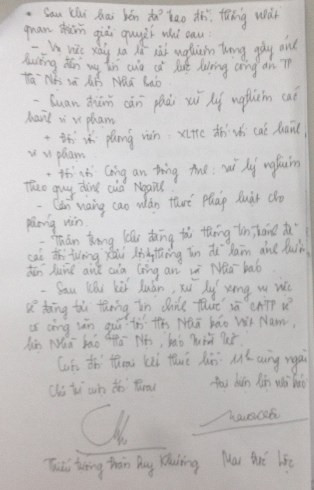 * Sau khi hai bên đã trao đổi, thống nhất
quan điểm giải quyết như sau:
- Vụ việc xảy ra là rất nghiêm trọng gây ảnh
hưởng đến uy tín của cả lực lượng công an TP
Hà Nội và hội Nhà báo
- Quan điểm cần phải xử lý nghiêm các
hành vi vi phạm
+ Đối với phóng viên: XLHC đối với các hành
vi vi phạm
+ Đối với Công an Đông Anh: xử lý nghiêm
theo quy định của Ngành.
- Cần nâng cao nhận thức pháp luật cho
phóng viên.
- Thận trọng khi đăng tải thông tin, tránh để
các đối tượng xấu thông tin để làm ảnh hưởng
đến hình ảnh của Công an và Nhà báo
- Sau khi kết luận, xử lý xong vụ việc
sẽ đăng tải thông tin chính thức và CATP sẽ
có công văn gửi tới Hội Nhà báo Việt Nam,
hội Nhà báo Hà Nội, báo
Cuộc đối thoại kết thúc hồi 11h cùng ngày
Chủ trì cuộc đối thoại Đại diện hội nhà báo
Thiếu tướng Đoàn Duy Khương Mai Đức Lộc